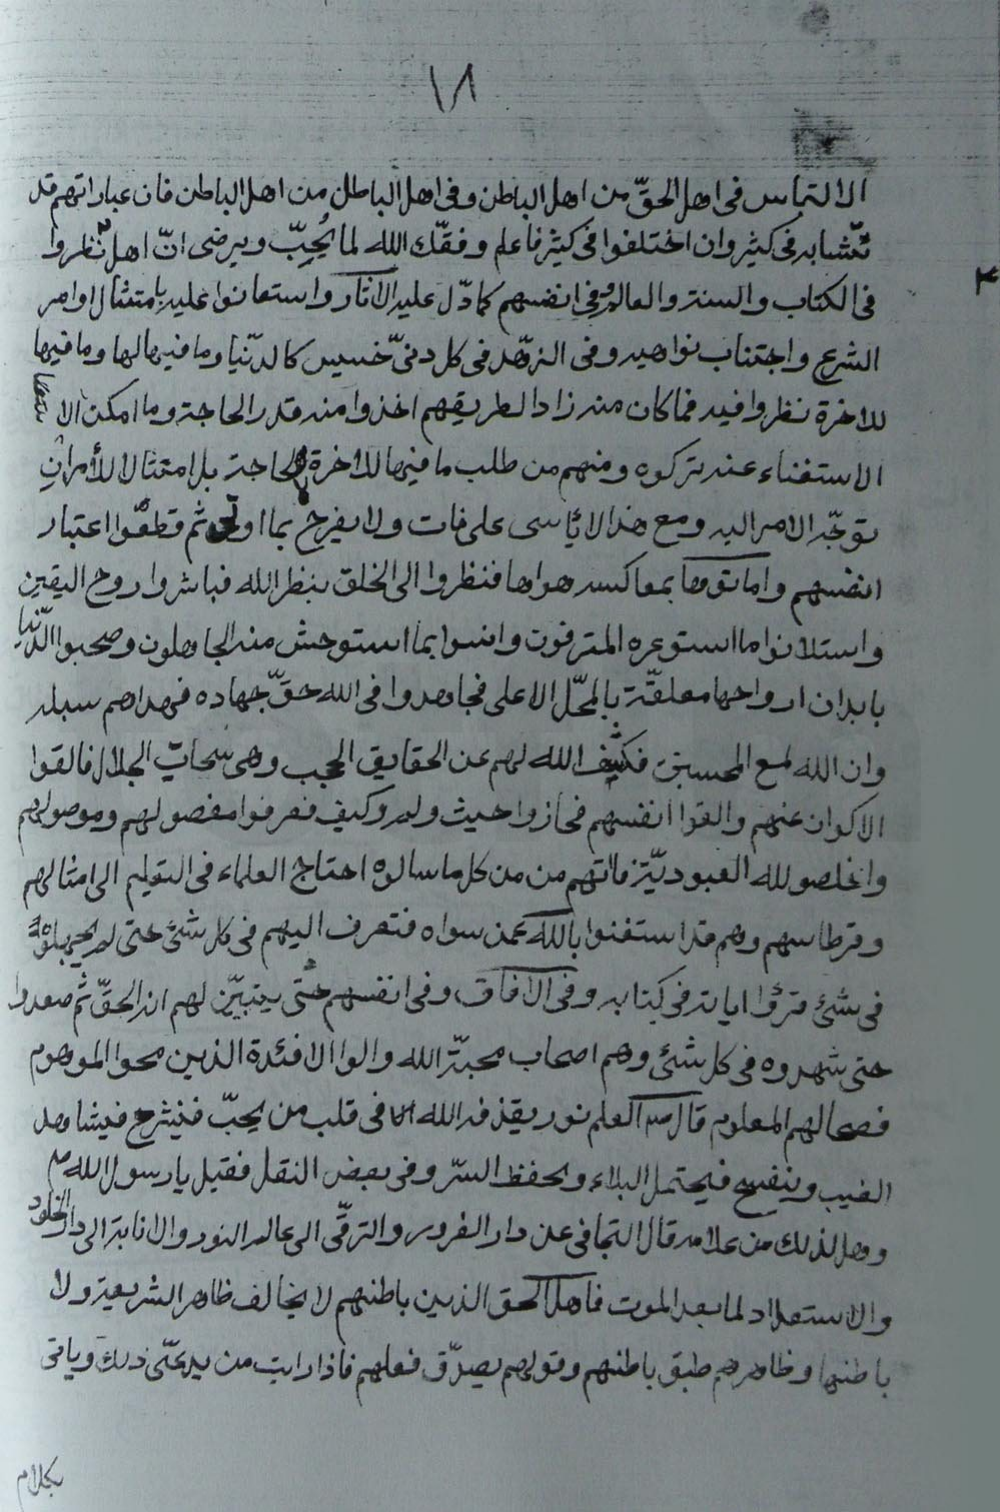 ١٨
الالتباس فى اهل الحقّ من اهل الباطن وفى اهل الباطل من اهل الباطن فان عباراتهم قد
تتشابه فى كثير وان اختلفوا فى كثير فاعلم وفقك الله لما يُحِبّ ويرضى انّ اهل نظروا
٢
فى الكتاب والسنة والعالم وفى انفسهم كما دّل عليه الاثار واستعانوا عليه بامتثال اوامر
الشرع واجتناب نواهيه وفى الزهد فى كل دنىّ خسيس كالدّنيا وما فيها لها وما فيها
للاخرة نظروا فيه فما كان منه زاد الطريقهم اخذوا منه قدر الحاجة وما امكن الا
الاستغناء عنه تركوه ومنهم من طلب ما فيها للاخرة لا لحاجة بل امتثالا للأمر ان
توجّه الامر اليه ومع هذا لا يأسى على فات ولا يفرح بما اوتى ثم قطعوا اعتبار
انفسهم واماتوها بمعاكسة هواها فنظروا الى الخلق بنظر الله فباشروا روح اليقين
واستلانوا ما استوعره المترفون وانسوا بما استوحش منه الجاهلون وصحبوا الدّنيا
بابدان ارواحها معلقّة بالمحّل الاعلى فجاهدوا فى الله حقّ جهاده فهداهم سبله
وان الله لمع المحسنين فكشف الله لهم عن الحقايق الحجب وهى سبحات الجلال فالقوا
الاكوان عنهم والقوا انفسهم فجازوا حيث ولم وكيف فعرفوا مفصولهم وموصولهم
واخلصو لله العبوديّة فاتهم من من كل ما سالوه احتاج العلماء فى التعليم الى امثالهم
وقرطاسهم وهم قد استغنوا بالله عمن سواه فتعرف اليهم فى كل شئ حتى لم يجهلوه
فى شئ فترؤا اياته فى كتابه وفى الافاق وفى انفسهم حتّى يتبيّن لهم انه الحقّ ثم صعدوا
حتى شهدوه فى كل شئى وهم اصحاب محبّة الله والوا الافئدة الذين محوا الموهوم
فصحا لهم المعلوم قال العلم نور يقذفه الله فى قلب من يحبّ فينشرح فيشاهد
الغيب وينفسح فيحتمل البلاء ويحفظ السّر وفى بعض النقل فقيل يا رسول الله
وهل لذلك من علامه قال التجافى عن دار الغرور والترقّى الى عالم النور والانابة الى دار الخلود
والاستعداد لما بعد الموت فاهل الحق الذين باطنهم لا يخالف ظاهر الشريعة ولا
باطنها وظاهرهم طبق باطنهم وقولهم يصدّق فعلهم فاذا رايت من يدعّى ذلك وياتى
بكلام